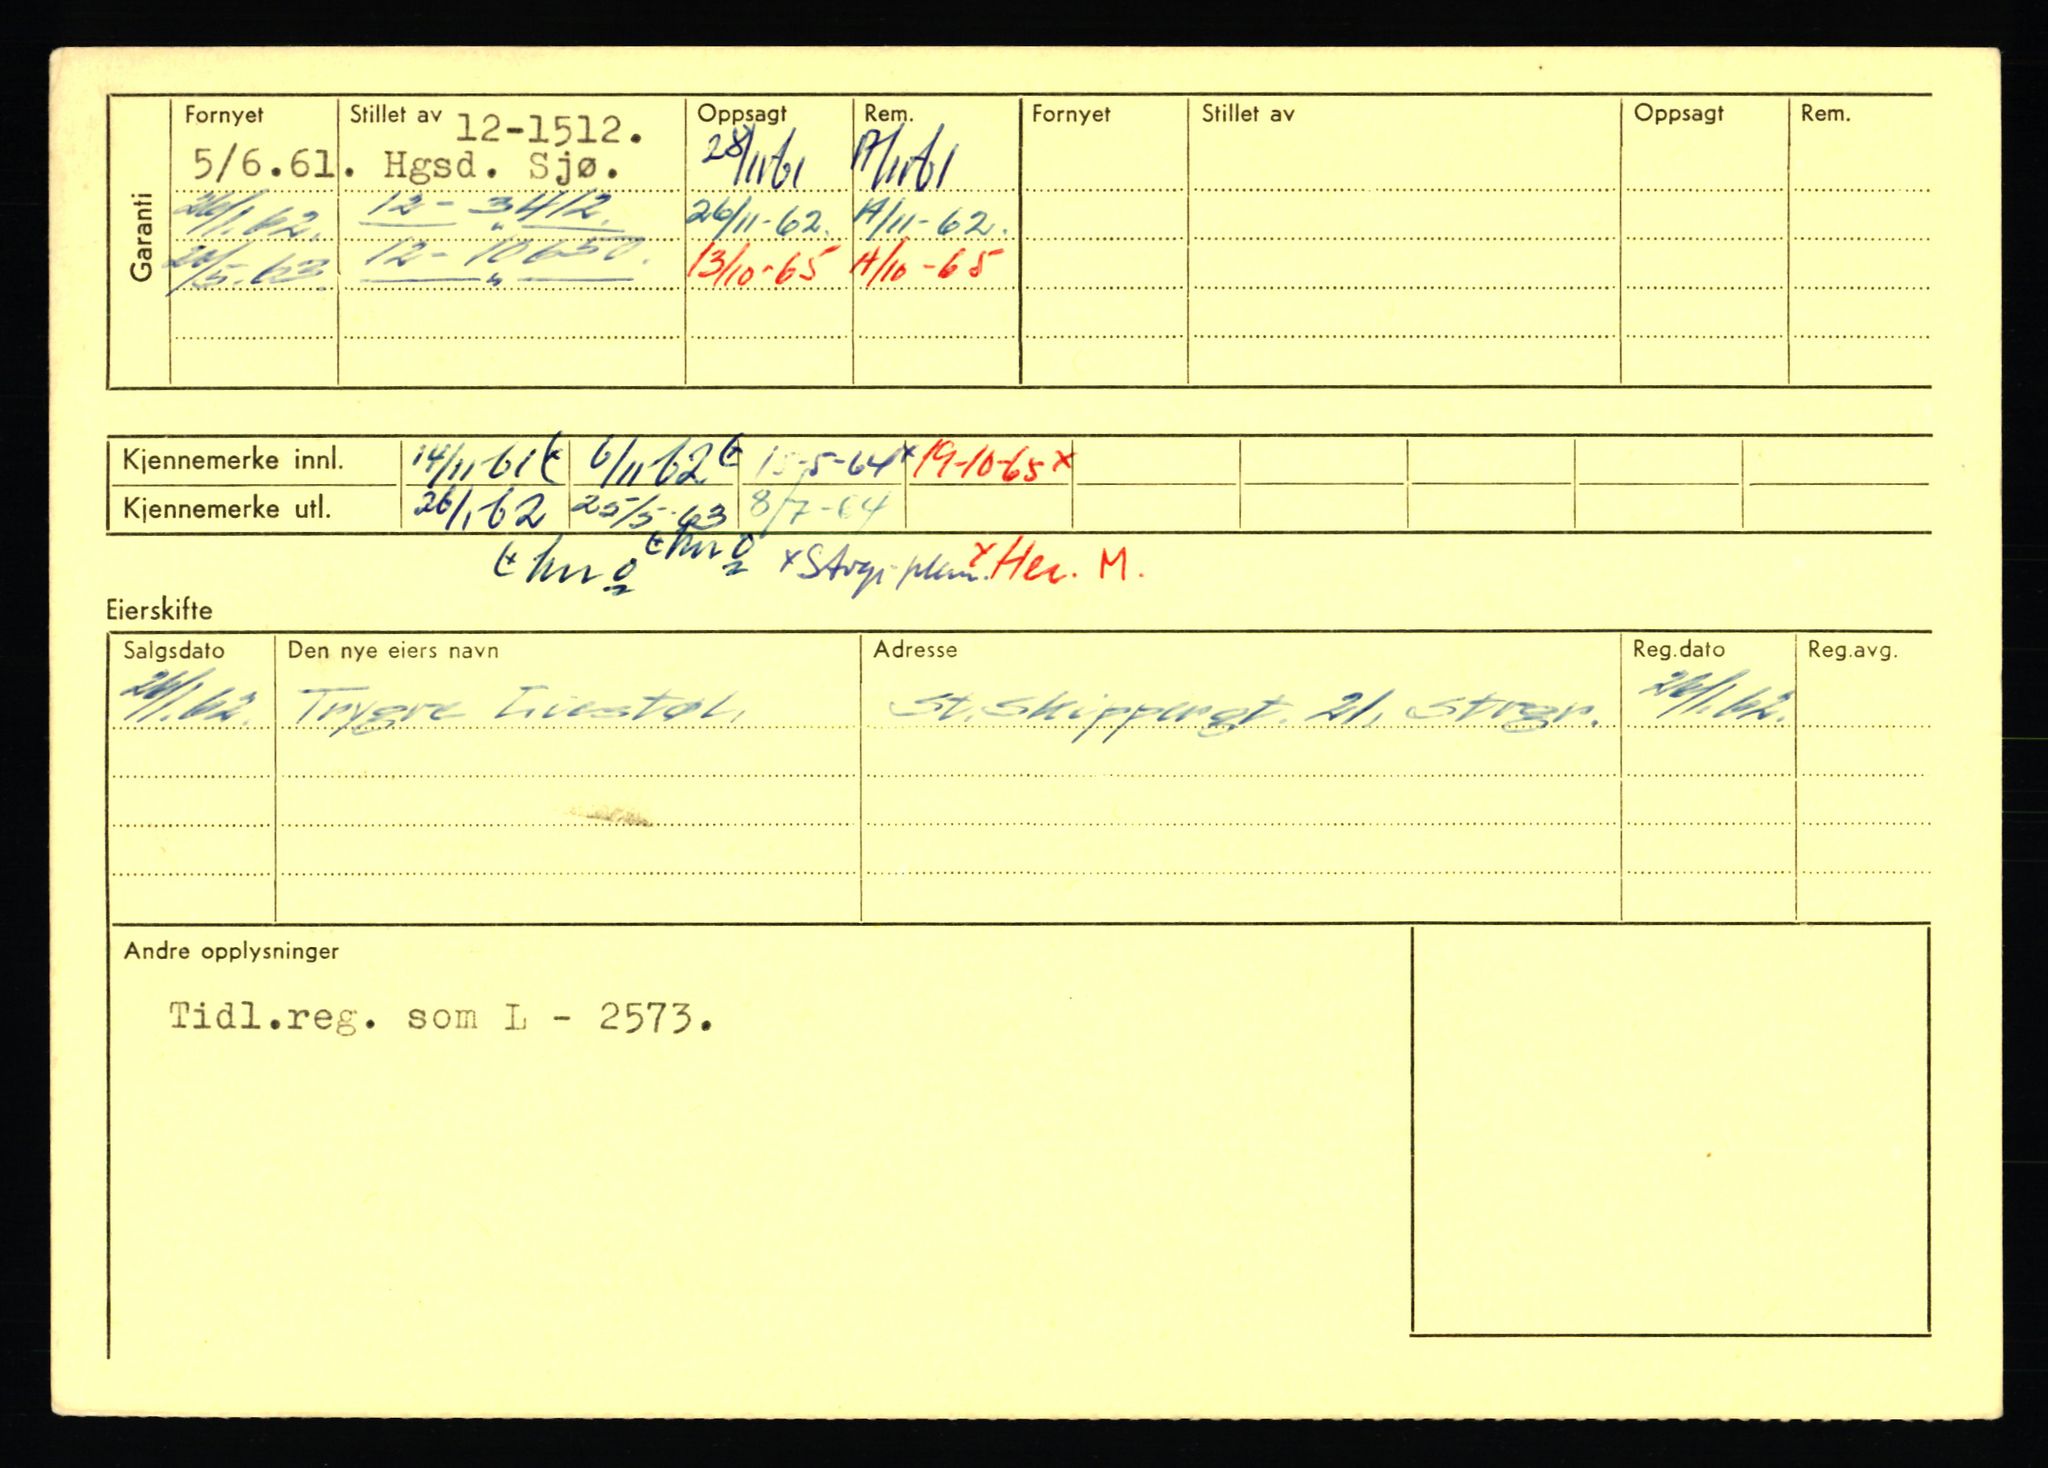 Garanti
Fornyet Stillet av Oppsagt Rem. Fornyet Stillet av Oppsagt Rem.
12-1512.
5/6.61. Hgsd. Sjø. 28/11 61 A/11 61
26/1.62. 12 - 3412. 26/11-62. A/11-62.
12 - 10650. 13/10-65 A/10-65
/5.63. — " —
Kjennemerke innl. 14/11-61 6/11 62 15-5-64 x 19-10-65 x
Kjennemerke utl. 26/1 62 25/5-63 8/7-64
x Her. M.
Eierskifte
Salgsdato Den nye eiers navn Adresse Reg.dato Reg.avg.
26/1.62. Trygve Liestøl, St. Skippergt. 21, Stvgr. 26/1.62.
Andre opplysninger
Tidl.reg. som L - 2573.